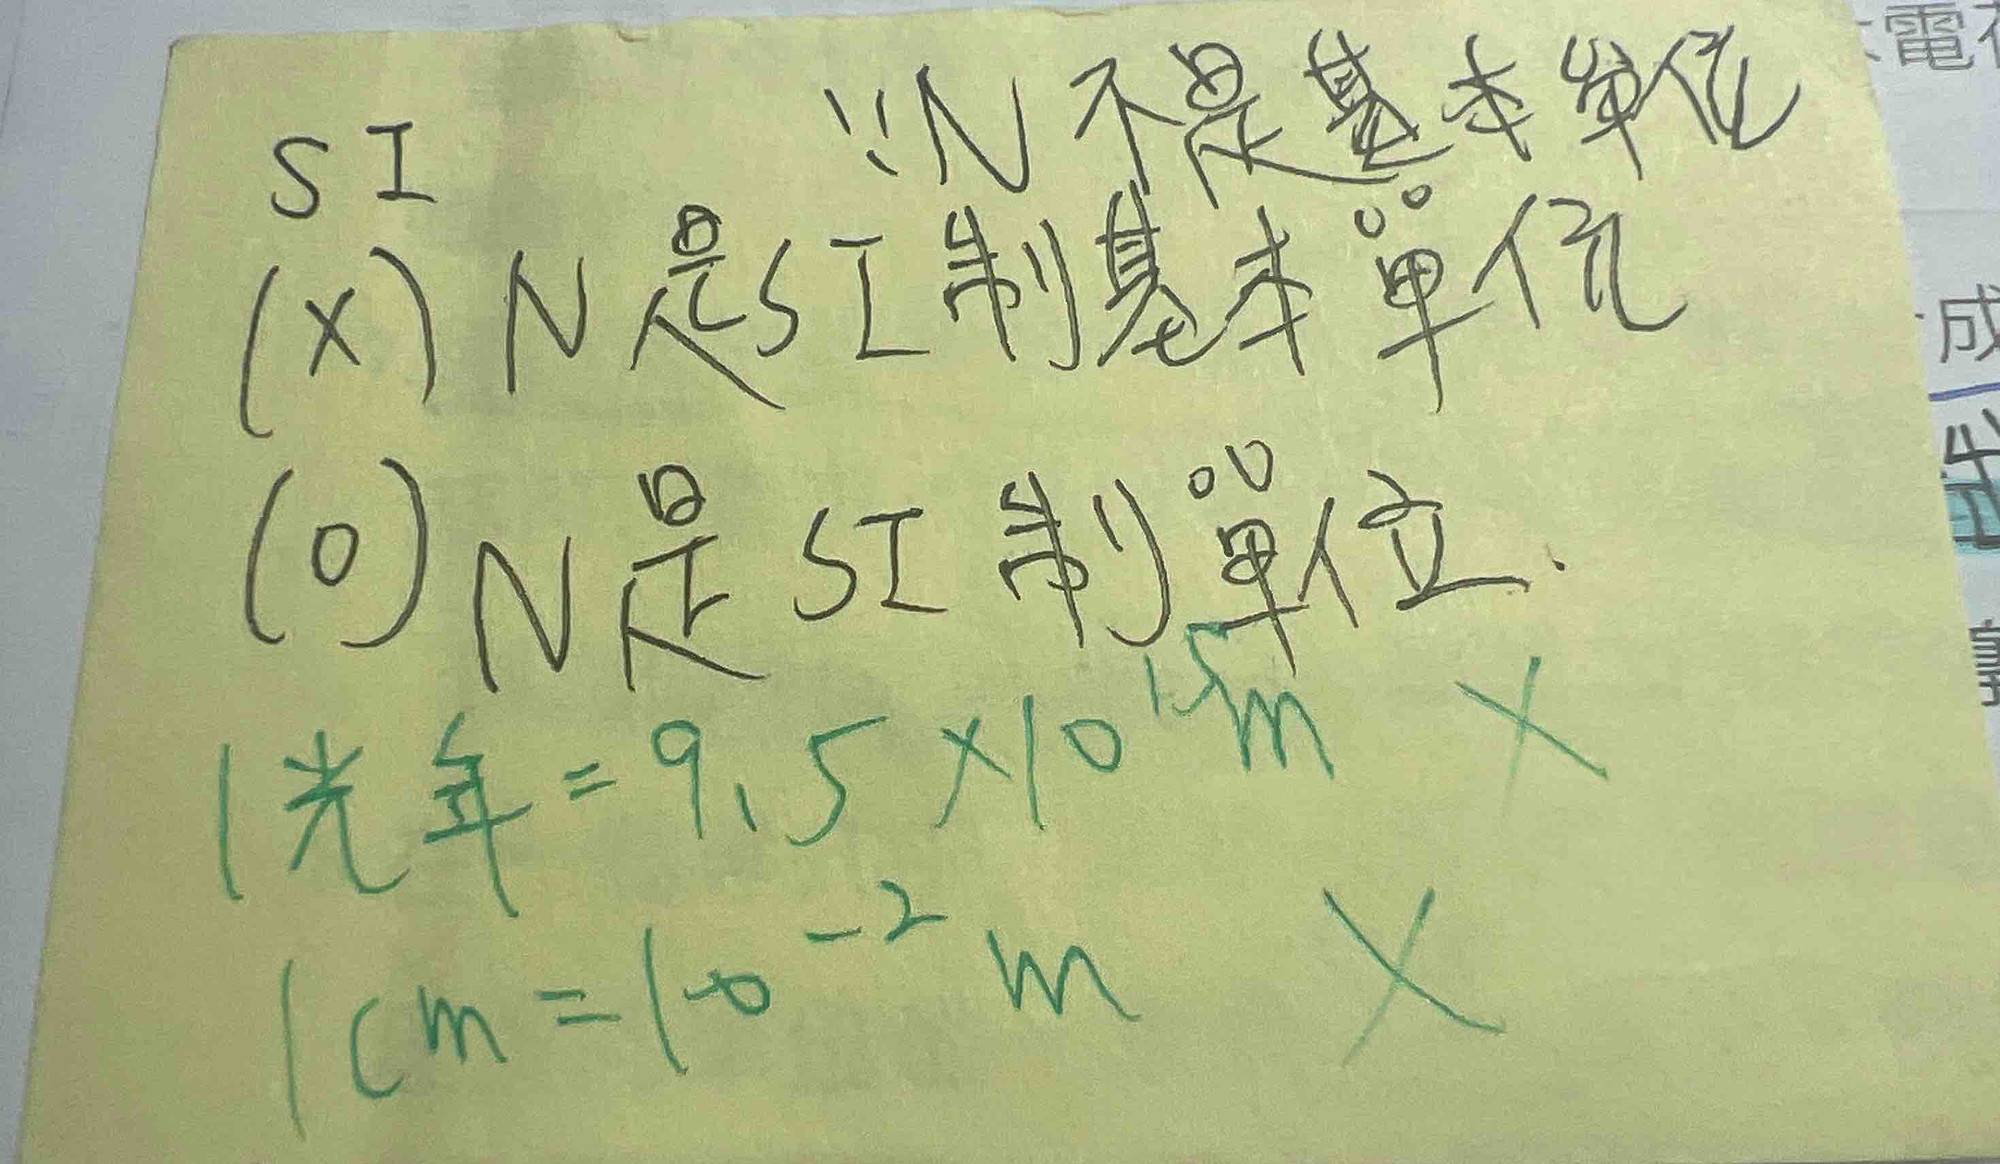 SI ∵N不是基本單位
(X) N是SI制基本單位
(O) N是SI制單位.
1光年=9.5×10¹⁵m X
1cm=10⁻²m X
電
成